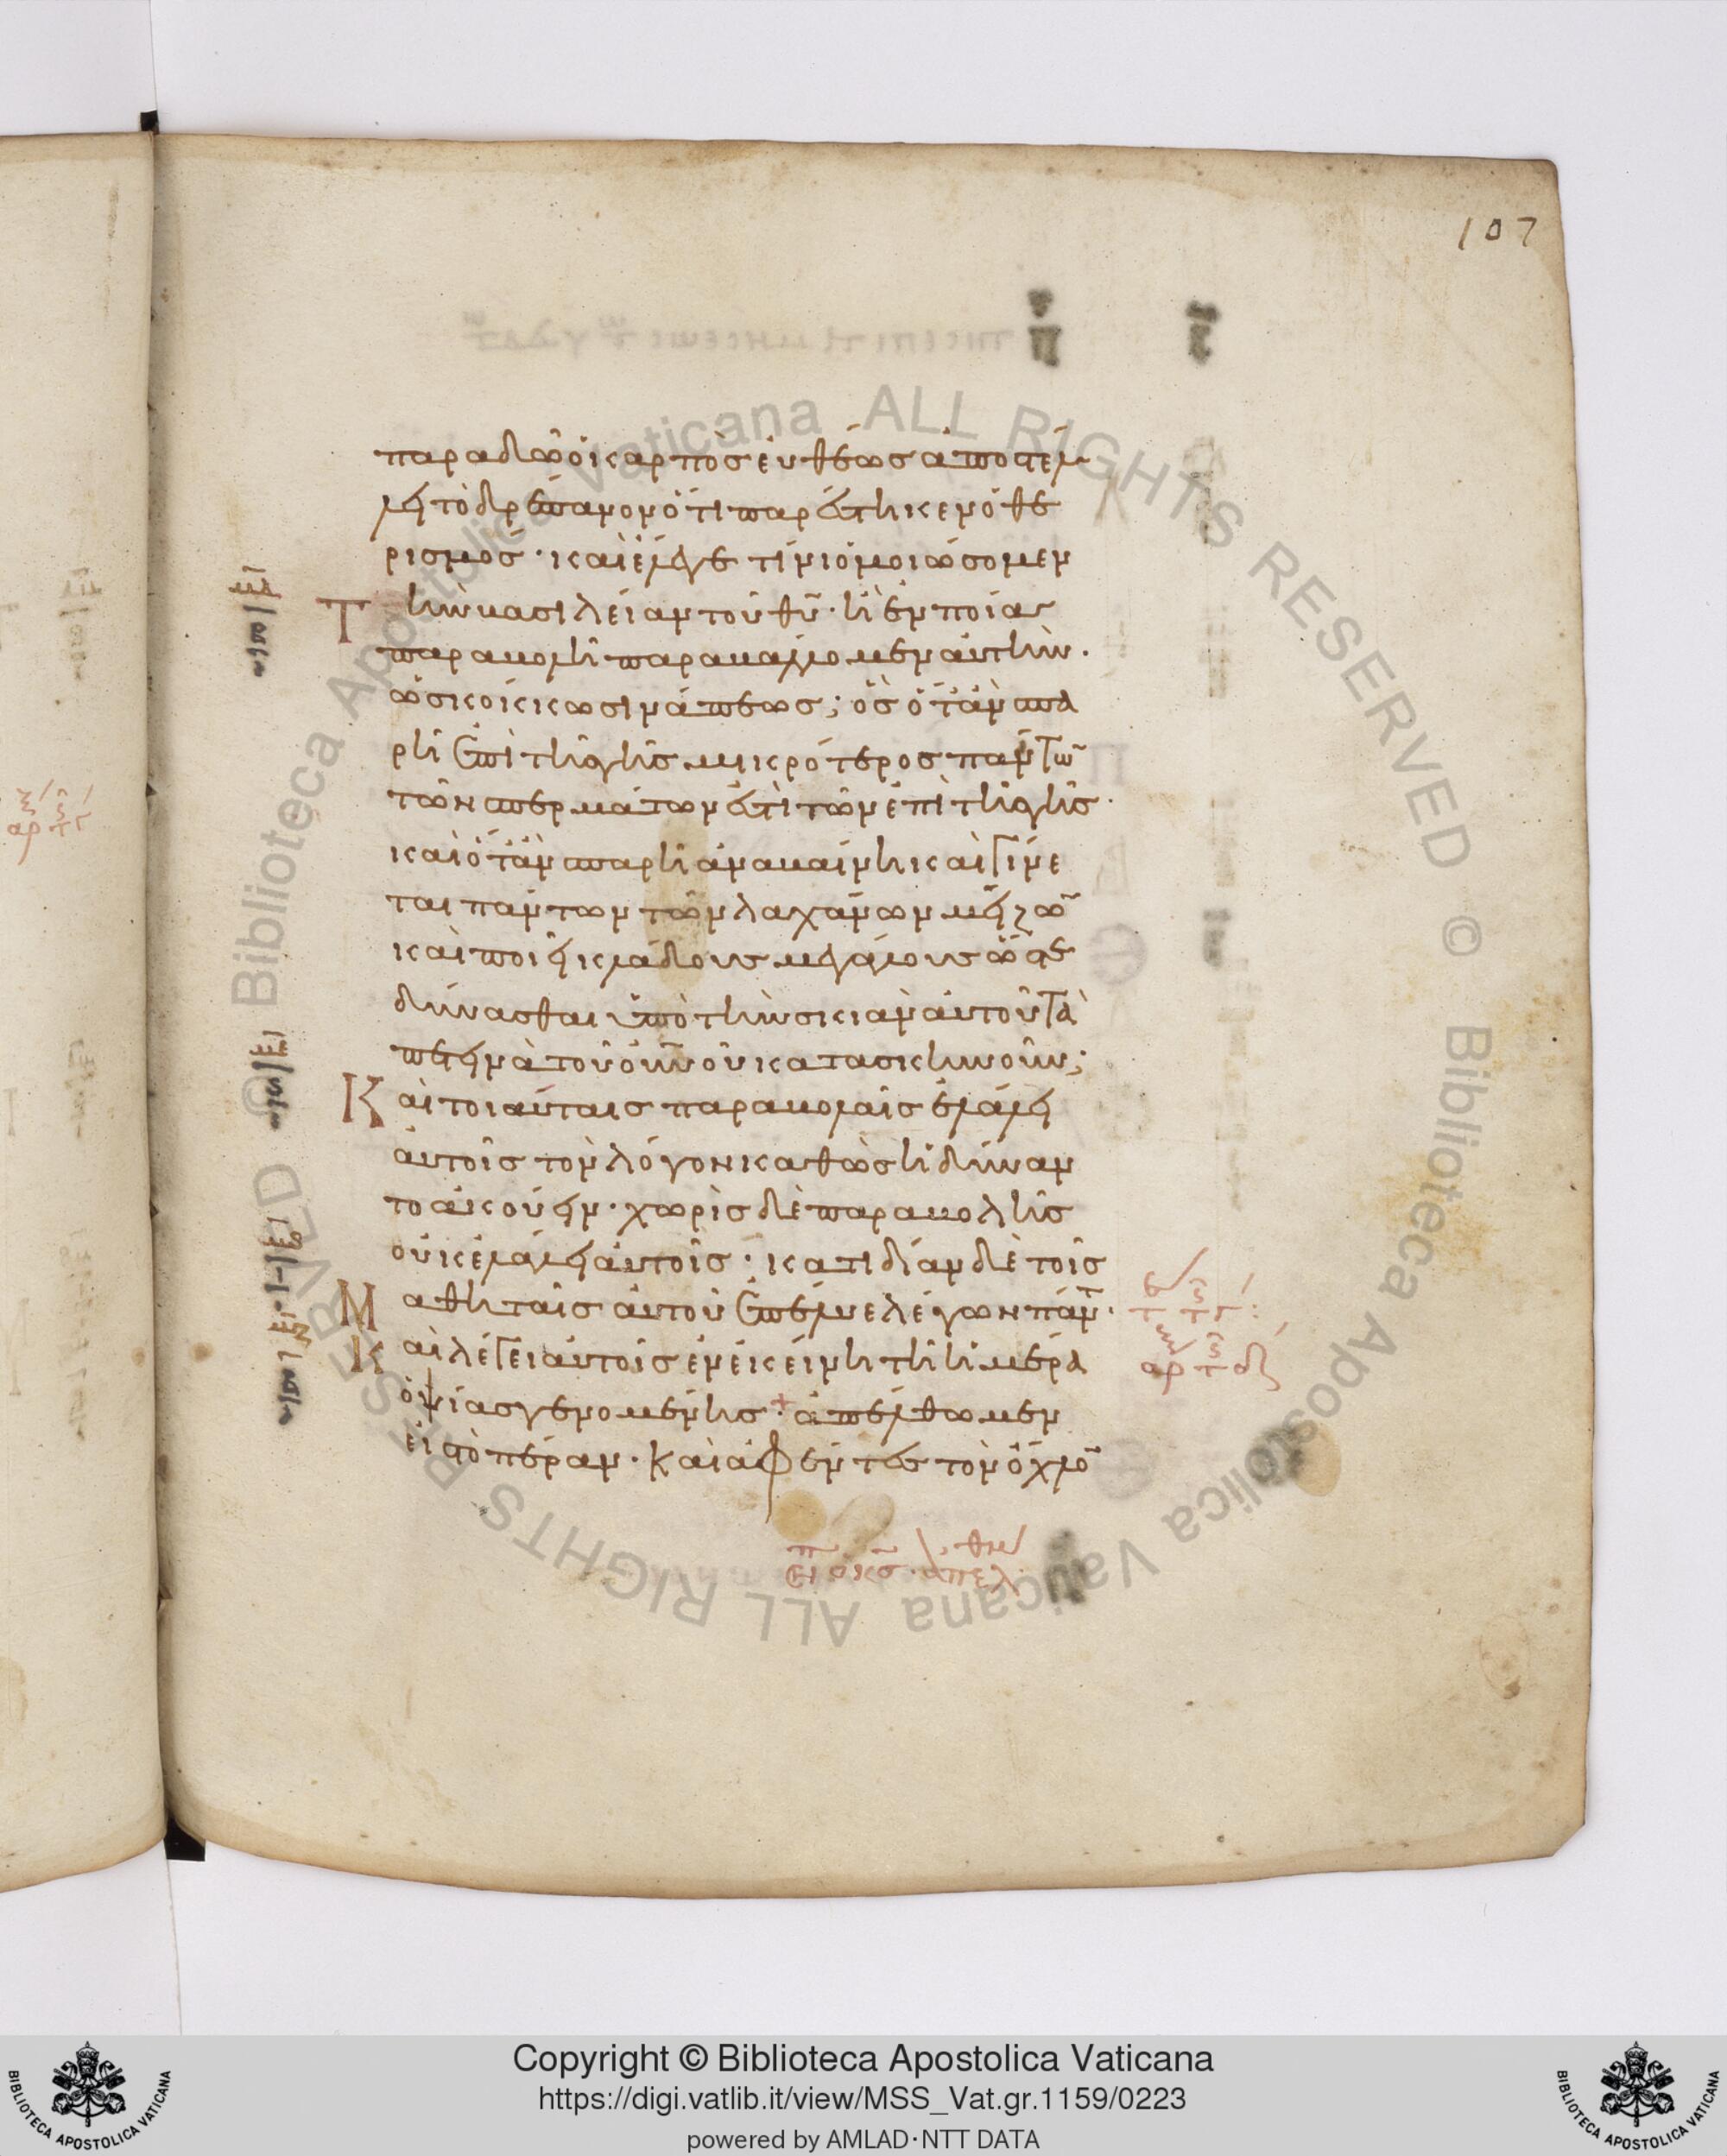 107
παραδῶ ὁ καρπὸς εὐθέως ἀποστέλ
λει τὸ δρέπανον ὅτι παρέστηκεν ὁ θε
ρισμός · καὶ ἔλεγε τίνι ὁμοιώσομεν
Τὴν βασιλείαν τοῦ θῦ · ἢ ἐν ποίᾳ
παραβολῆ παραβάλομεν αὐτήν ·
ὡς κόκκω σινάπεως ; ὃς ὅταν σπα
ρῆ ἐπὶ τῆς γῆς μικρότερος πάντω̄
τῶν σπερμάτων ἐστὶ τῶν ἐπὶ τῆς γῆς ·
καὶ ὅταν σπαρῆ ἀναβαίνη καὶ γίνε
ται πάντων τῶν λαχάνων μείζω̄
καὶ ποιεῖ κλάδους μεγάλους ὥστε
δύνασθαι ὑπὸ τὴν σκιὰν αὐτοῦ τὰ
πετεινὰ τοῦ οὐνοῦ κατασκηνοῦν ;
Καὶ τοιαύταις παραβολαῖς ἐλάλει
αὐτοῖς τὸν λόγον καθὼς ἠδύναν
το ἀκούειν · χωρὶς δὲ παραβολῆς
οὐκ ἐλάλει αὐτοῖς · κατιδίαν δὲ τοῖς
Μαθηταῖς αὐτοῦ ἐπέλυε λέγων πάντ ·
Καὶ λέγει αὐτοῖς ἐν ἐκείνη τῆ ἡμέρα
ὀψίας γενομένης · + ἀπέλθωμεν
εἰς τὸ πέραν · Καὶ ἀφέντες τὸν ὄχλο̄
Biblioteca Apostolica Vaticana ALL RIGHTS RESERVED ©
Biblioteca Apostolica Vaticana ALL RIGHTS RESERVED ©
BIBLIOTECA APOSTOLICA VATICANA
Copyright © Biblioteca Apostolica Vaticana
https://digi.vatlib.it/view/MSS_Vat.gr.1159/0223
powered by AMLAD·NTT DATA
BIBLIOTECA APOSTOLICA VATICANA